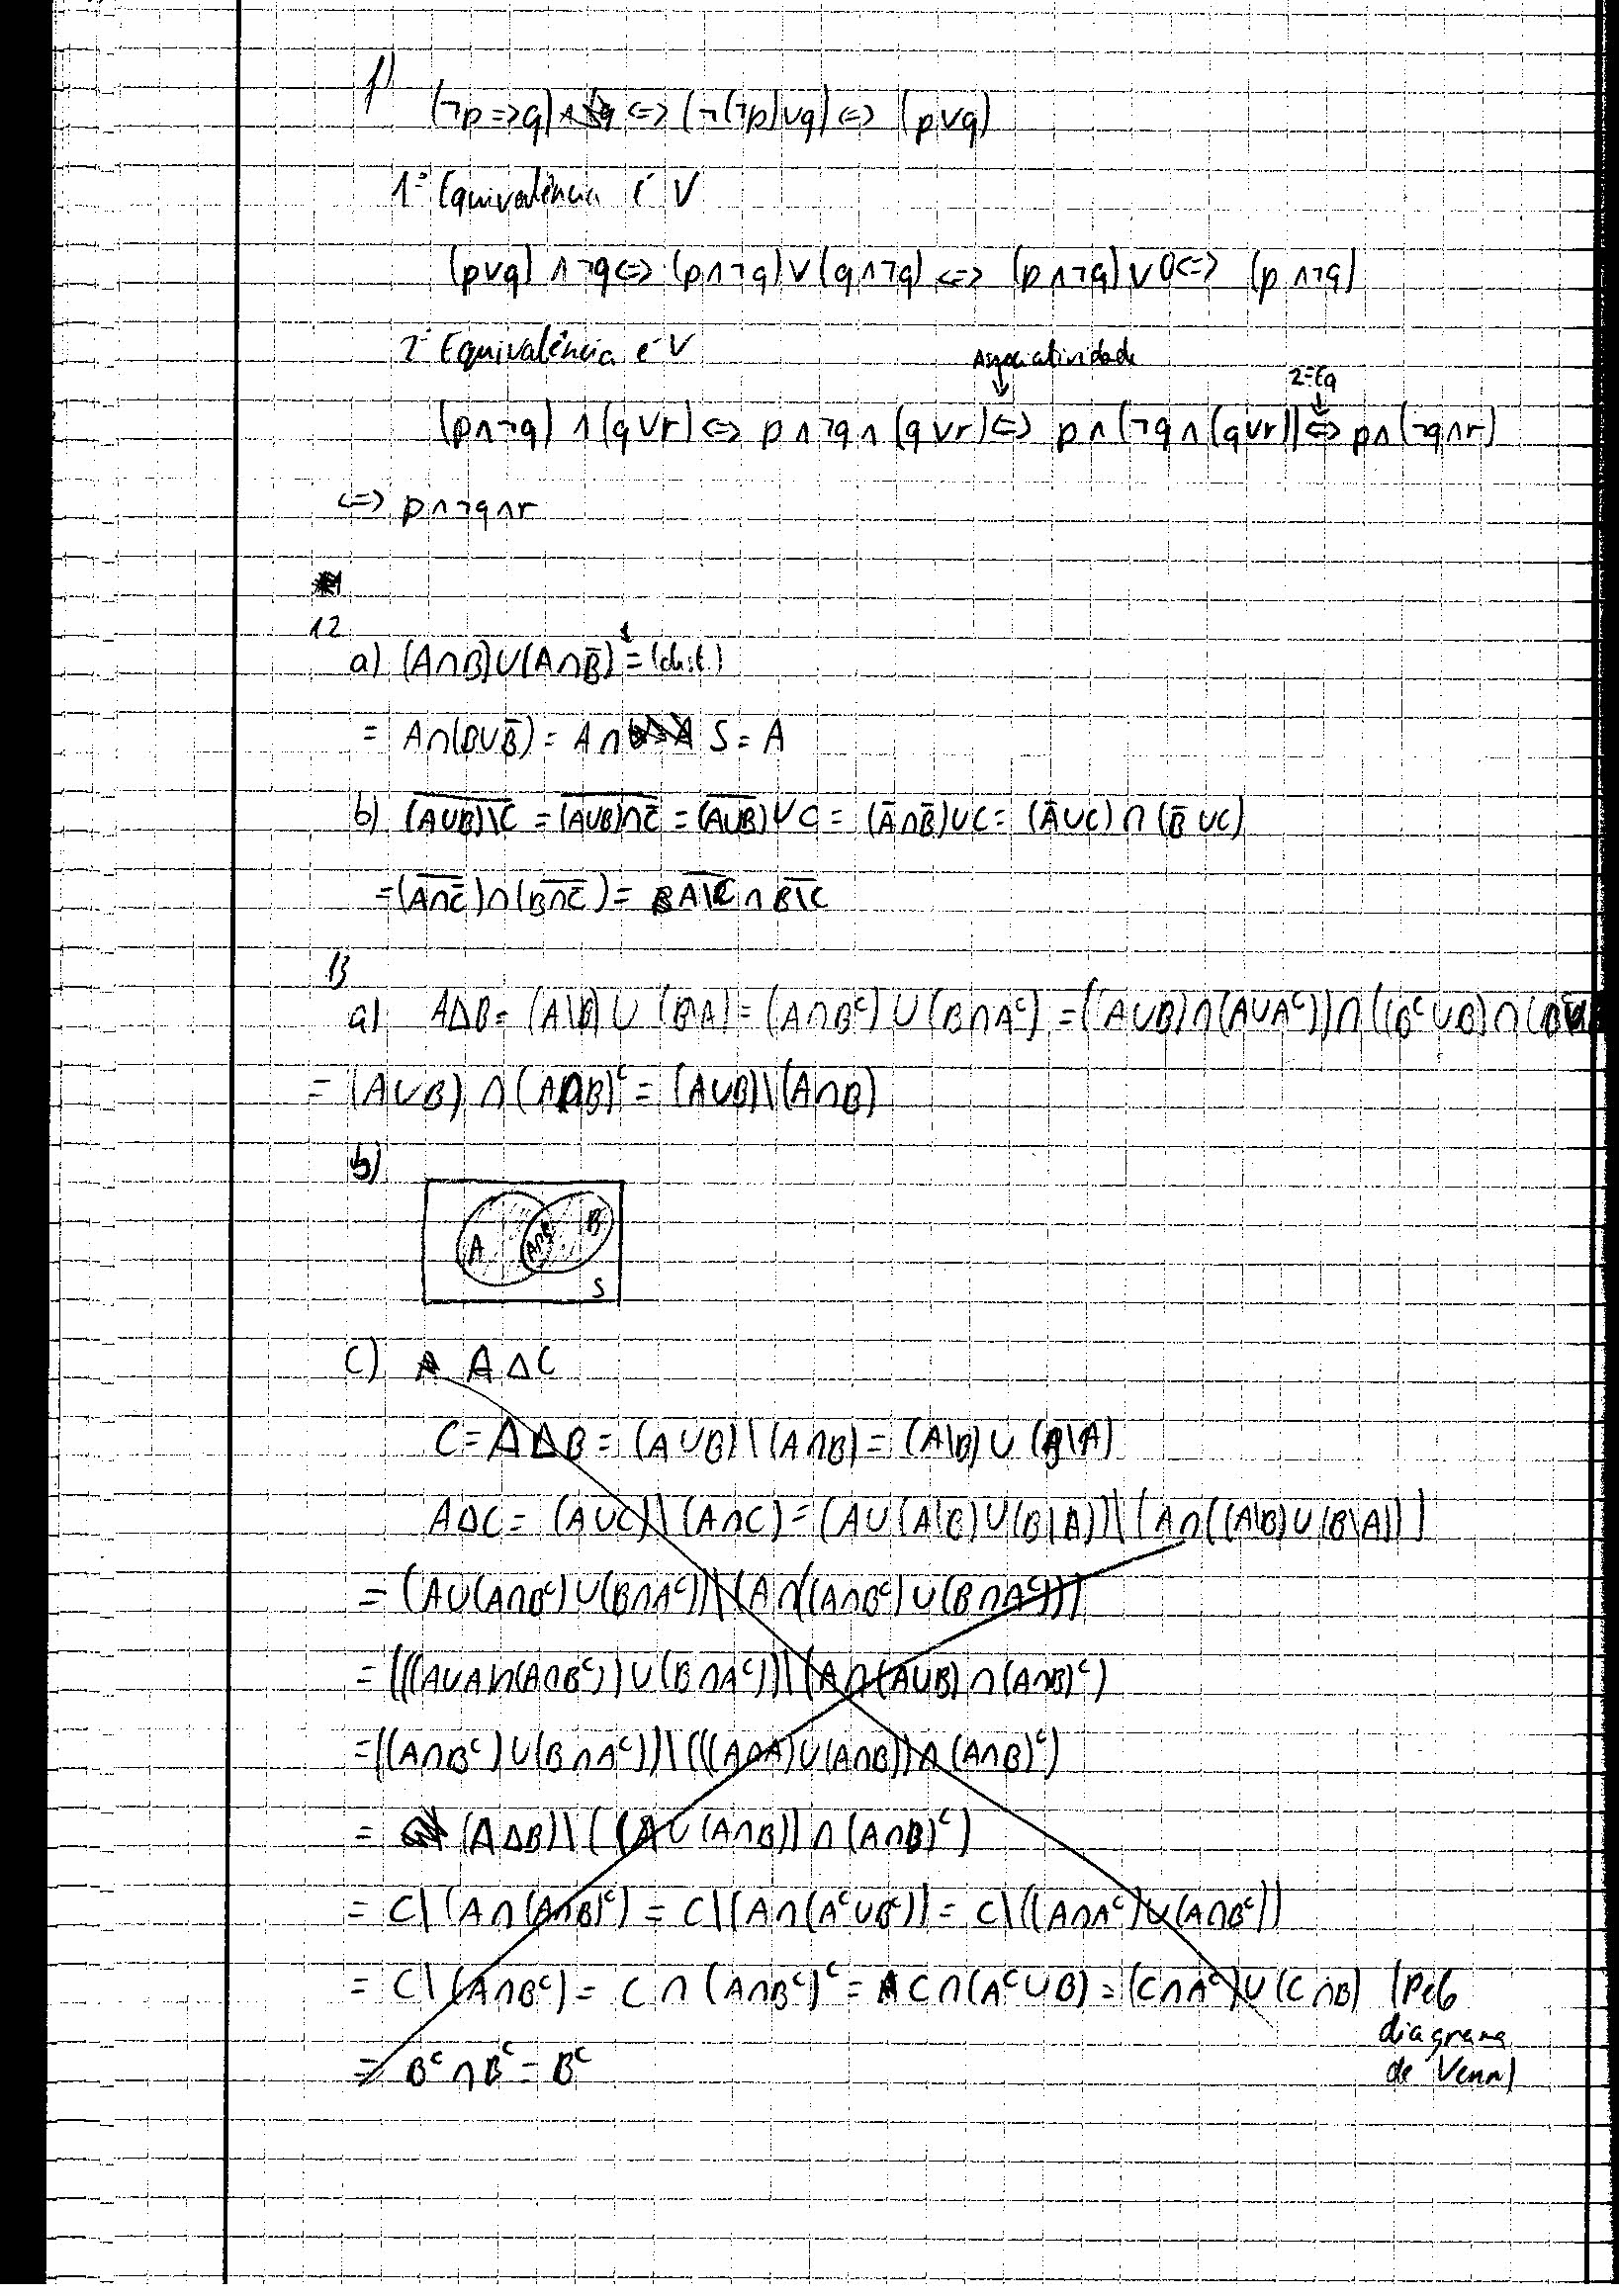 f)
(¬p=>q) ∧ <=> (¬(¬p)∨q) <=> (p∨q)
1ª Equivalência é V
(p∨q) ∧ ¬q <=> (p∧¬q)∨(q∧¬q) <=> (p∧¬q)∨0 <=> (p∧¬q)
2ª Equivalência é V
Associatividade
2ªEq
(p∧¬q) ∧ (q∨r) <=> p∧¬q∧(q∨r) <=> p∧(¬q∧(q∨r)) <=> p∧(¬q∧r)
<=> p∧¬q∧r
12
a) (A∩B)∪(A∩B̅) = (dist.)
= A∩(B∪B̅) = A∩ S = A
b) \overline{(A∪B)\C} = \overline{(A∪B)∩C̅} = \overline{(A∪B)}∪C = (A̅∩B̅)∪C = (A̅∪C)∩(B̅∪C)
= (\overline{A∩C̅})∩(\overline{B∩C̅}) = \overline{A\C} ∩ \overline{B\C}
13
a) AΔB = (A\B)∪(B\A) = (A∩Bᶜ)∪(B∩Aᶜ) = ((A∪B)∩(A∪Aᶜ))∩((Bᶜ∪B)∩(
= (A∪B)∩(A∩B)ᶜ = (A∪B)\(A∩B)
b)
A A∩B B
S
c) A AΔC
C = AΔB = (A∪B)\(A∩B) = (A\B)∪(B\A)
AΔC = (A∪C)\(A∩C) = (A∪(A\B)∪(B\A))\(A∩((A\B)∪(B\A)))
= (A∪(A∩Bᶜ)∪(B∩Aᶜ))\(A∩((A∩Bᶜ)∪(B∩Aᶜ)))
= (((A∪A∩(A∩Bᶜ))∪(B∩Aᶜ))\(A∩(A∪B)∩(A∩B)ᶜ)
= ((A∩Bᶜ)∪(B∩Aᶜ))\(((A∩A)∪(A∩B))∩(A∩B)ᶜ)
= (AΔB)\((A∪(A∩B))∩(A∩B)ᶜ)
= C\(A∩(A∩B)ᶜ) = C\(A∩(Aᶜ∪Bᶜ)) = C\((A∩Aᶜ)∪(A∩Bᶜ))
= C\(A∩Bᶜ) = C∩(A∩Bᶜ)ᶜ = C∩(Aᶜ∪B) = (C∩Aᶜ)∪(C∩B) (Pelo
diagrama
de Venn)
= Bᶜ∩Bᶜ = Bᶜ